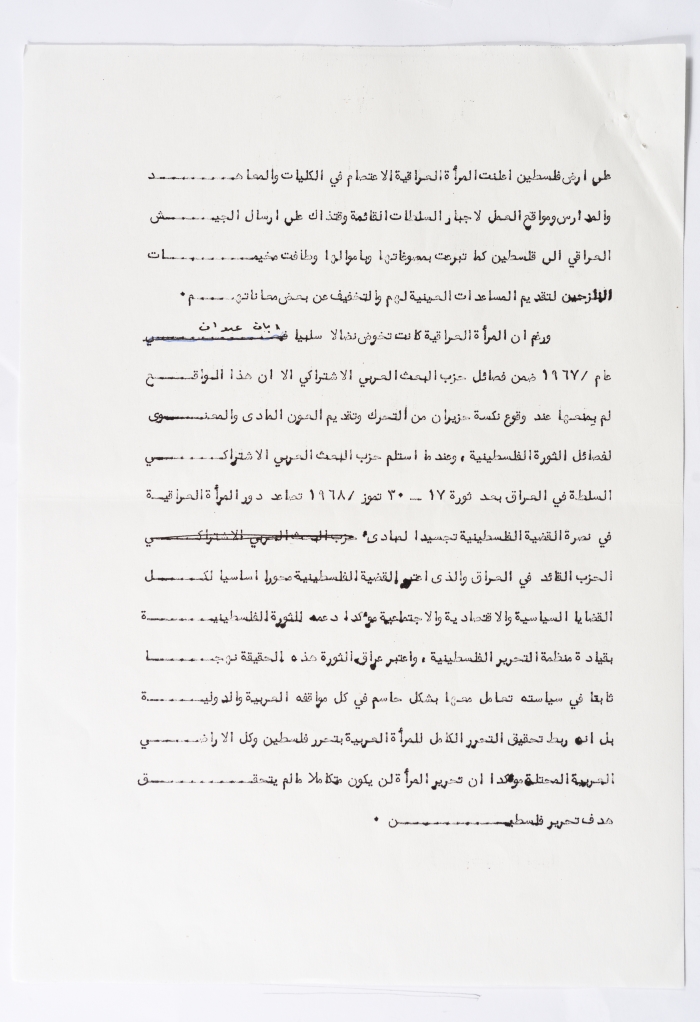 على ارض فلسطين اعلنت المرأة العراقية الاعتصام في الكليات والمعاهــــد
والمدارس ومواقع العمل لاجبار السلطات القائمة وقتذاك على ارسال الجيــــش
العراقي الى فلسطين كما تبرعت بمصوغاتها وباموالها وطافت مخيمـــــات
النازحين لتقديم المساعدات العينية لهم والتخفيف عن بعض معاناتهــــم .
ابان عدوان
ورغم ان المرأة العراقية كانت تخوض نضالا سلبيا
عام /١٩٦٧ ضمن فصائل حزب البعث العربي الاشتراكي الا ان هذا المواقـــع
لم يمنعها عند وقوع نكسة حزيران من التحرك وتقديم العون المادى والمعنـــوى
لفصائل الثورة الفلسطينية ، وعندما استلم حزب البعث العربي الاشتراكــــي
السلطة في العراق بعد ثورة ١٧ ــ ٣٠ تموز /١٩٦٨ تصاعد دور المرأة العراقيــة
في نصرة القضية الفلسطينية تجسيدا لمبادىء حزب البعث العربي الاشتراكــــي
الحزب القائد في العراق والذى اعتبر القضية الفلسطينية محورا اساسيا لكــــل
القضايا السياسية والاقتصادية والاجتماعية مؤكدا دعمه للثورة الفلسطينيــــة
بقيادة منظمة التحرير الفلسطينية ، واعتبر عراق الثورة هذه الحقيقة نهجــــا
ثابتا في سياسته تعامل معها بشكل حاسم في كل مواقفه العربية والدوليــــة
بل انه ربط تحقيق التحرر الكامل للمرأة العربية بتحرر فلسطين وكل الاراضــــي
العربية المحتلة مؤكدا ان تحرير المرأة لن يكون متكاملا مالم يتحقــــق
هدف تحرير فلسطيــــــن .